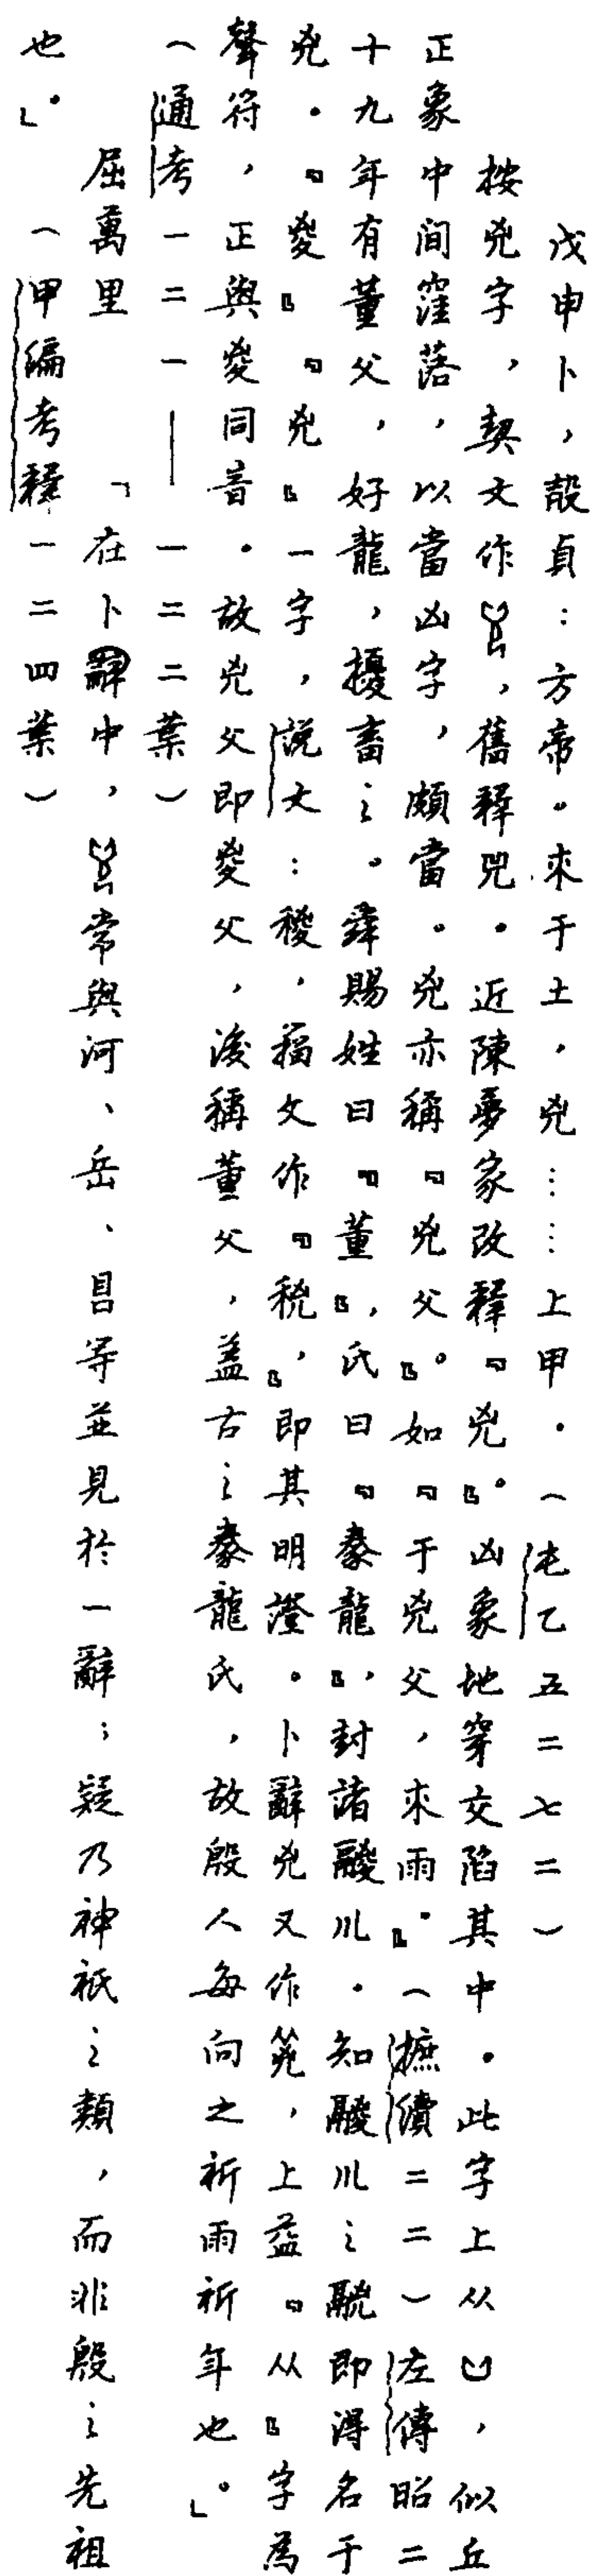 戊申卜，㱿貞：方帝。來于土，兇……上甲．（屯乙五二七二）
按兇字，契文作，舊釋兕．近陳夢家改釋『兇』。凶象地穿交陷其中．此字上从凵，似丘
正象中間窪落，以當凶字，頗當。兇亦稱『兇父』。如『于兇父，來雨』．（摭續二二）左傳昭二
十九年有董父，好龍，擾畜之。舜賜姓曰『董』，氏曰『豢龍』，封諸鬷川．知鬷川之即得名于
兇．『㚇』『兇』一字，說文：稯，籀文作『』，即其明證．卜辭兇又作，上益『从』字為
聲符，正與㚇同音．故兇父即㚇父，後稱董父，蓋古之豢龍氏，故殷人每向之祈雨祈年也。」
（通考一二一——一二二葉）
屈萬里　「在卜辭中，常與河、岳、等並見於一辭；疑乃神祇之類，而非殷之先祖
也．」（甲編考釋一二四葉）